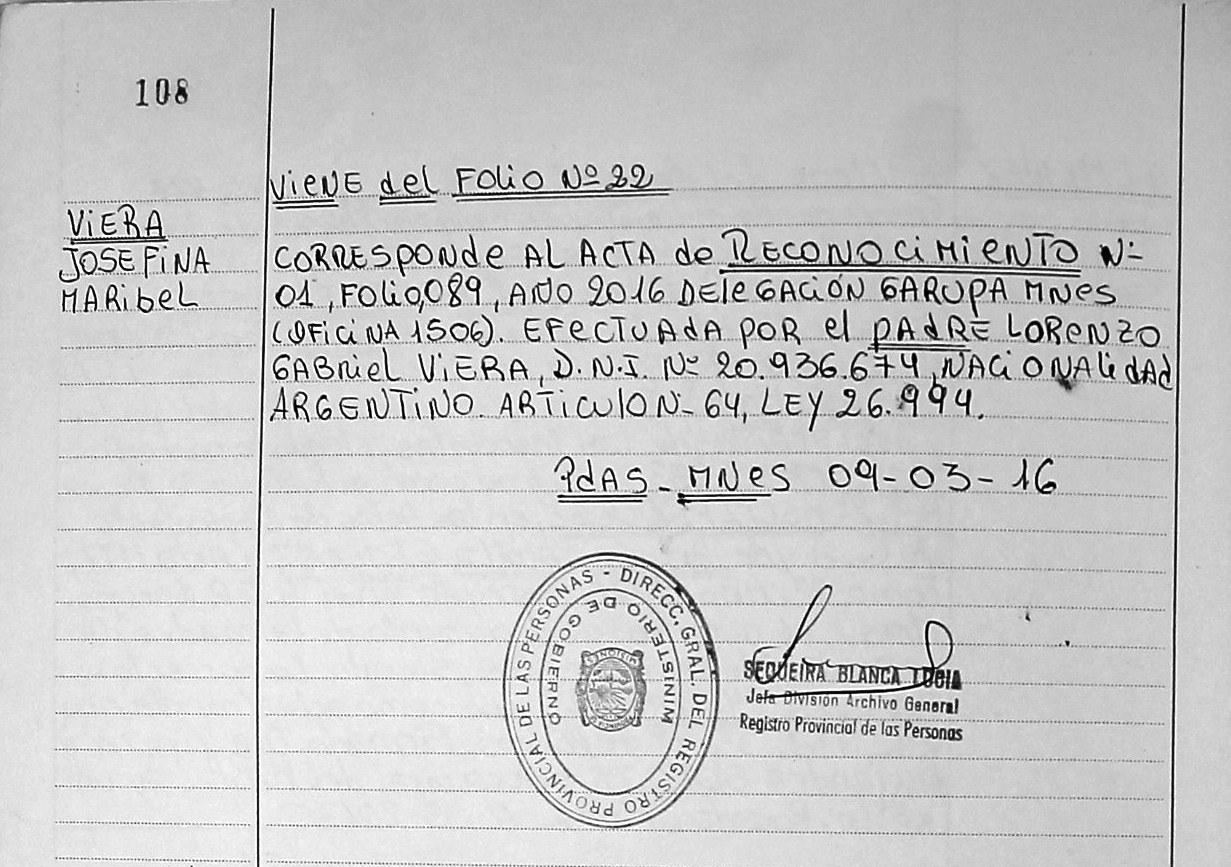 108
VIENE del FOLIO Nº 22
VIERA
JOSEFINA
MARIBEL
CORRESPONDE AL ACTA de RECONOCIMIENTO Nº
01, FOLIO, 089, AÑO 2016 DELEGACIÓN GARUPA MNES
(OFICINA 1506). EFECTUADA POR el PADRE LORENZO
GABRIEL VIERA, D.N.I. Nº 20.936.674, NACIONALIDAD
ARGENTINO. ARTICULO N- 64, LEY 26.994.
PDAS - MNES 09-03-16
DIRECC. GRAL. DEL REGISTRO PROVINCIAL DE LAS PERSONAS -
MINISTERIO DE GOBIERNO
SEQUEIRA BLANCA LUCIA
Jefa División Archivo General
Registro Provincial de las Personas